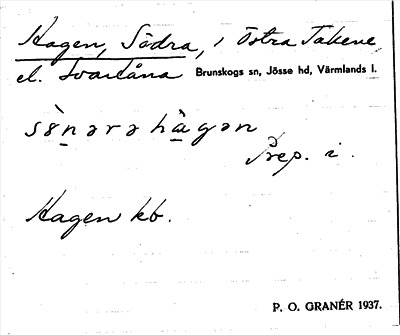 Hagen, Södra, i Östra Takene
el. Svartåna Brunskogs sn, Jösse hd, Värmlands l.
sö̀nərə hàgən
Prep. i.
Hagen kb.
P. O. GRANÉR 1937.